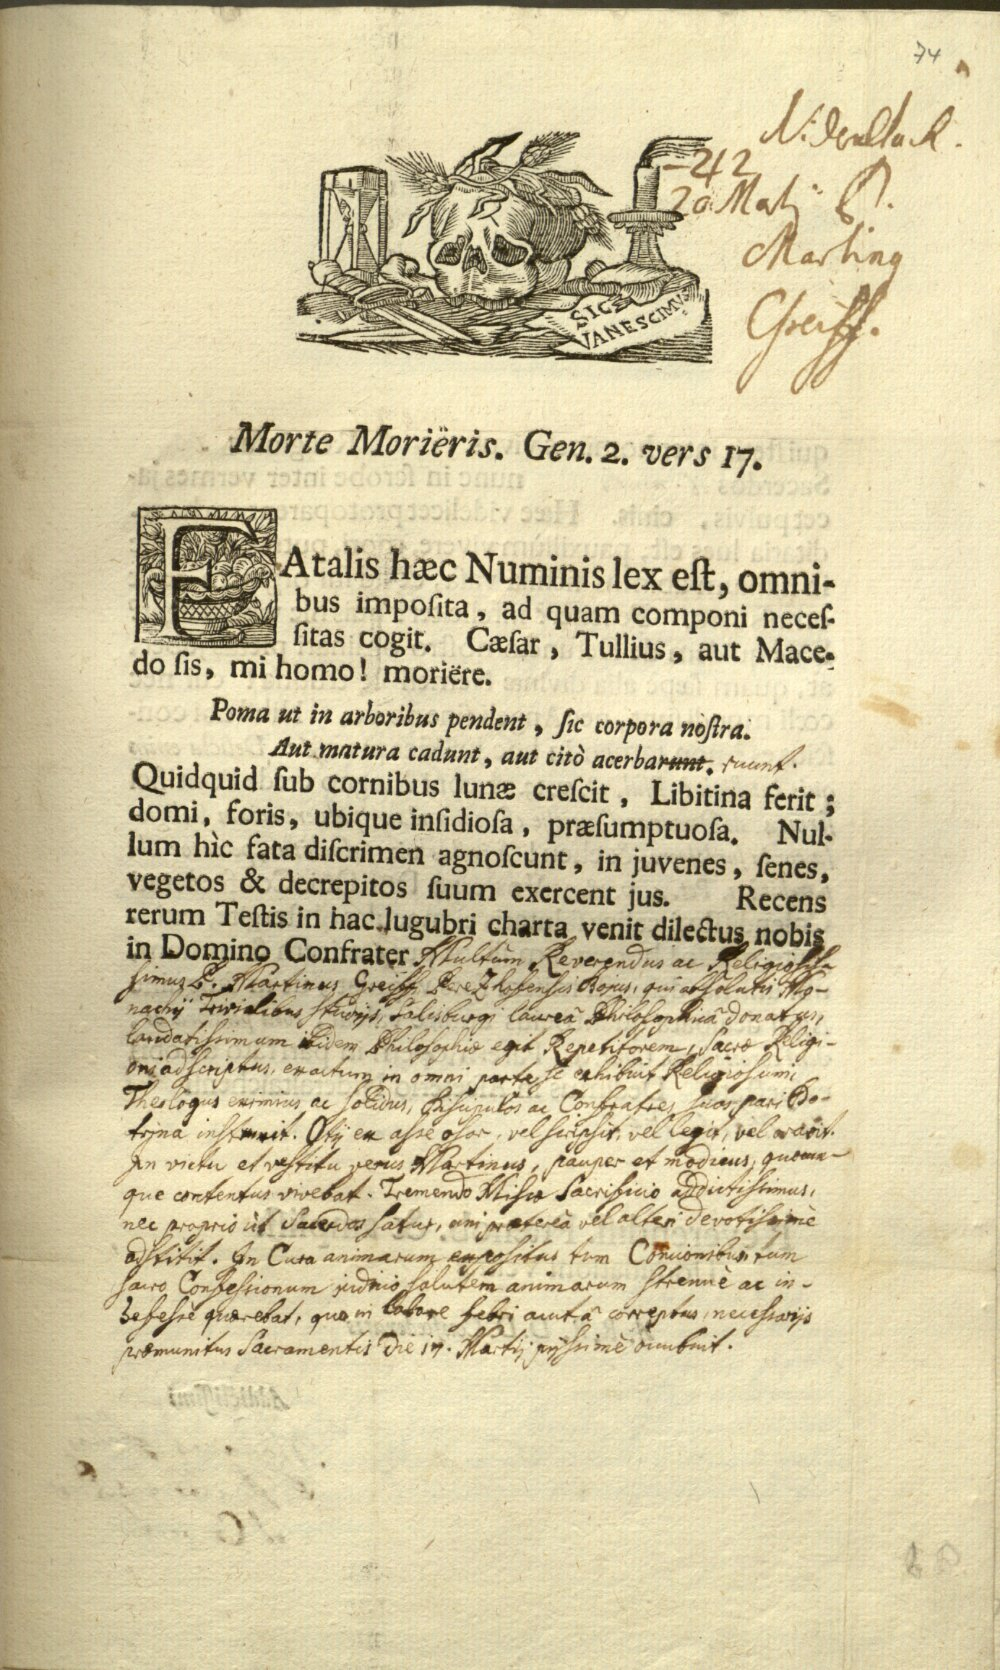 74
-242
20 Martij P.
Martinus
Greissl.
SIC
VANESCIMVS
Morte Moriëris. Gen. 2. vers 17.
FAtalis hæc Numinis lex eſt, omni-
bus impoſita, ad quam componi neceſ-
ſitas cogit. Cæſar, Tullius, aut Mace-
do ſis, mi homo! moriëre.
Poma ut in arboribus pendent, ſic corpora noſtra.
Aut matura cadunt, aut citò acerbarunt. ruunt.
Quidquid ſub cornibus lunæ creſcit, Libitina ferit;
domi, foris, ubique inſidioſa, præſumptuoſa. Nul-
lum hìc fata diſcrimen agnoſcunt, in juvenes, ſenes,
vegetos & decrepitos ſuum exercent jus. Recens
rerum Teſtis in hac lugubri charta venit dilectus nobis
in Domino Confrater Multùm Reverendus ac Religiosis-
simus P. Martinus qui absolutis Mo-
nachij Trivialibus studijs, Salisburgi laureâ Philosophicâ donatus,
laudatissimum ibidem Philosophiæ egit Repetitorem, Sacræ Religi-
oni adscriptus, exactum in omni parte se exhibuit Religiosum,
Theologus eximius ac solidus, Discipulos ac Confratres suos pari Do-
trina instruxit. Otij ex asse osor, vel scripsit, vel legit, vel oravit.
In victu et vestitu verus Martinus, pauper et modicus, quocun-
que contentus vivebat. Tremendo Missæ Sacrificio addictissimus,
nec proprio ut Sacerdos satur, uni præterea vel alteri devotissimè
adstitit. In Cura animarum expositus tum Concionibus tum
sacro Confessionum judicio salutem animarum strenuè ac in-
defessè quærebat, quo in labore febri acutâ correptus, necessarijs
præmunitus Sacramentis Die 17. Martij pijssimè occubuit.